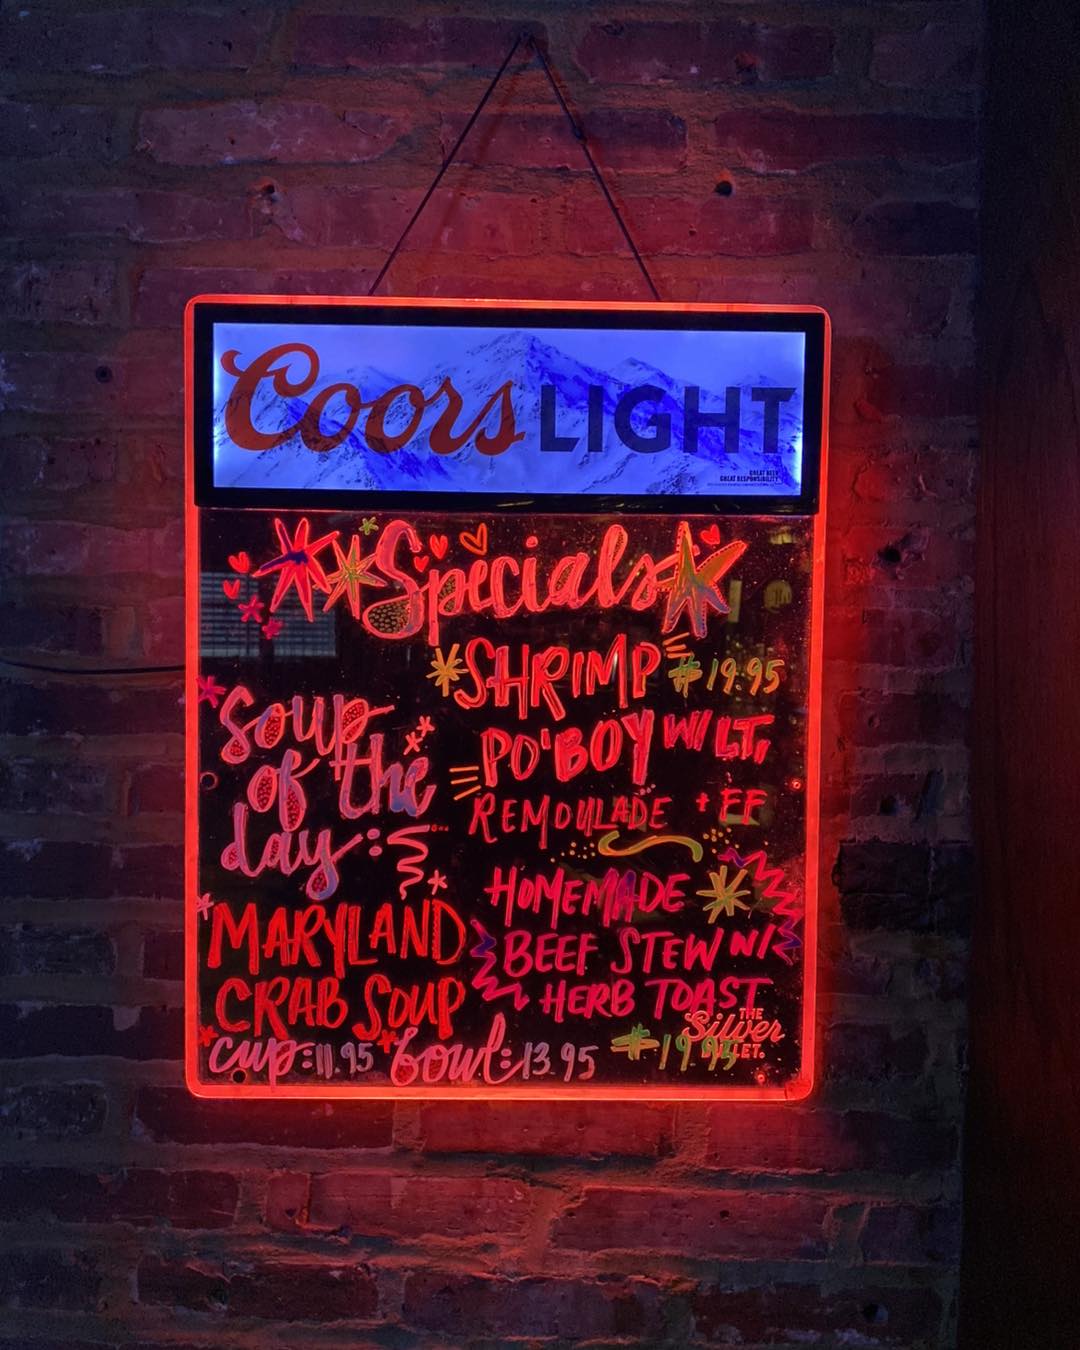 Coors LIGHT
GREAT BEER
GREAT RESPONSIBILITY
Specials
Soup
of the
day:
MARYLAND
CRAB SOUP
cup: 11.95 bowl: 13.95
SHRIMP $19.95
PO'BOY W/ LT,
REMOULADE + FF
HOMEMADE
BEEF STEW W/
HERB TOAST
$19.95
THE
Silver
BULLET.